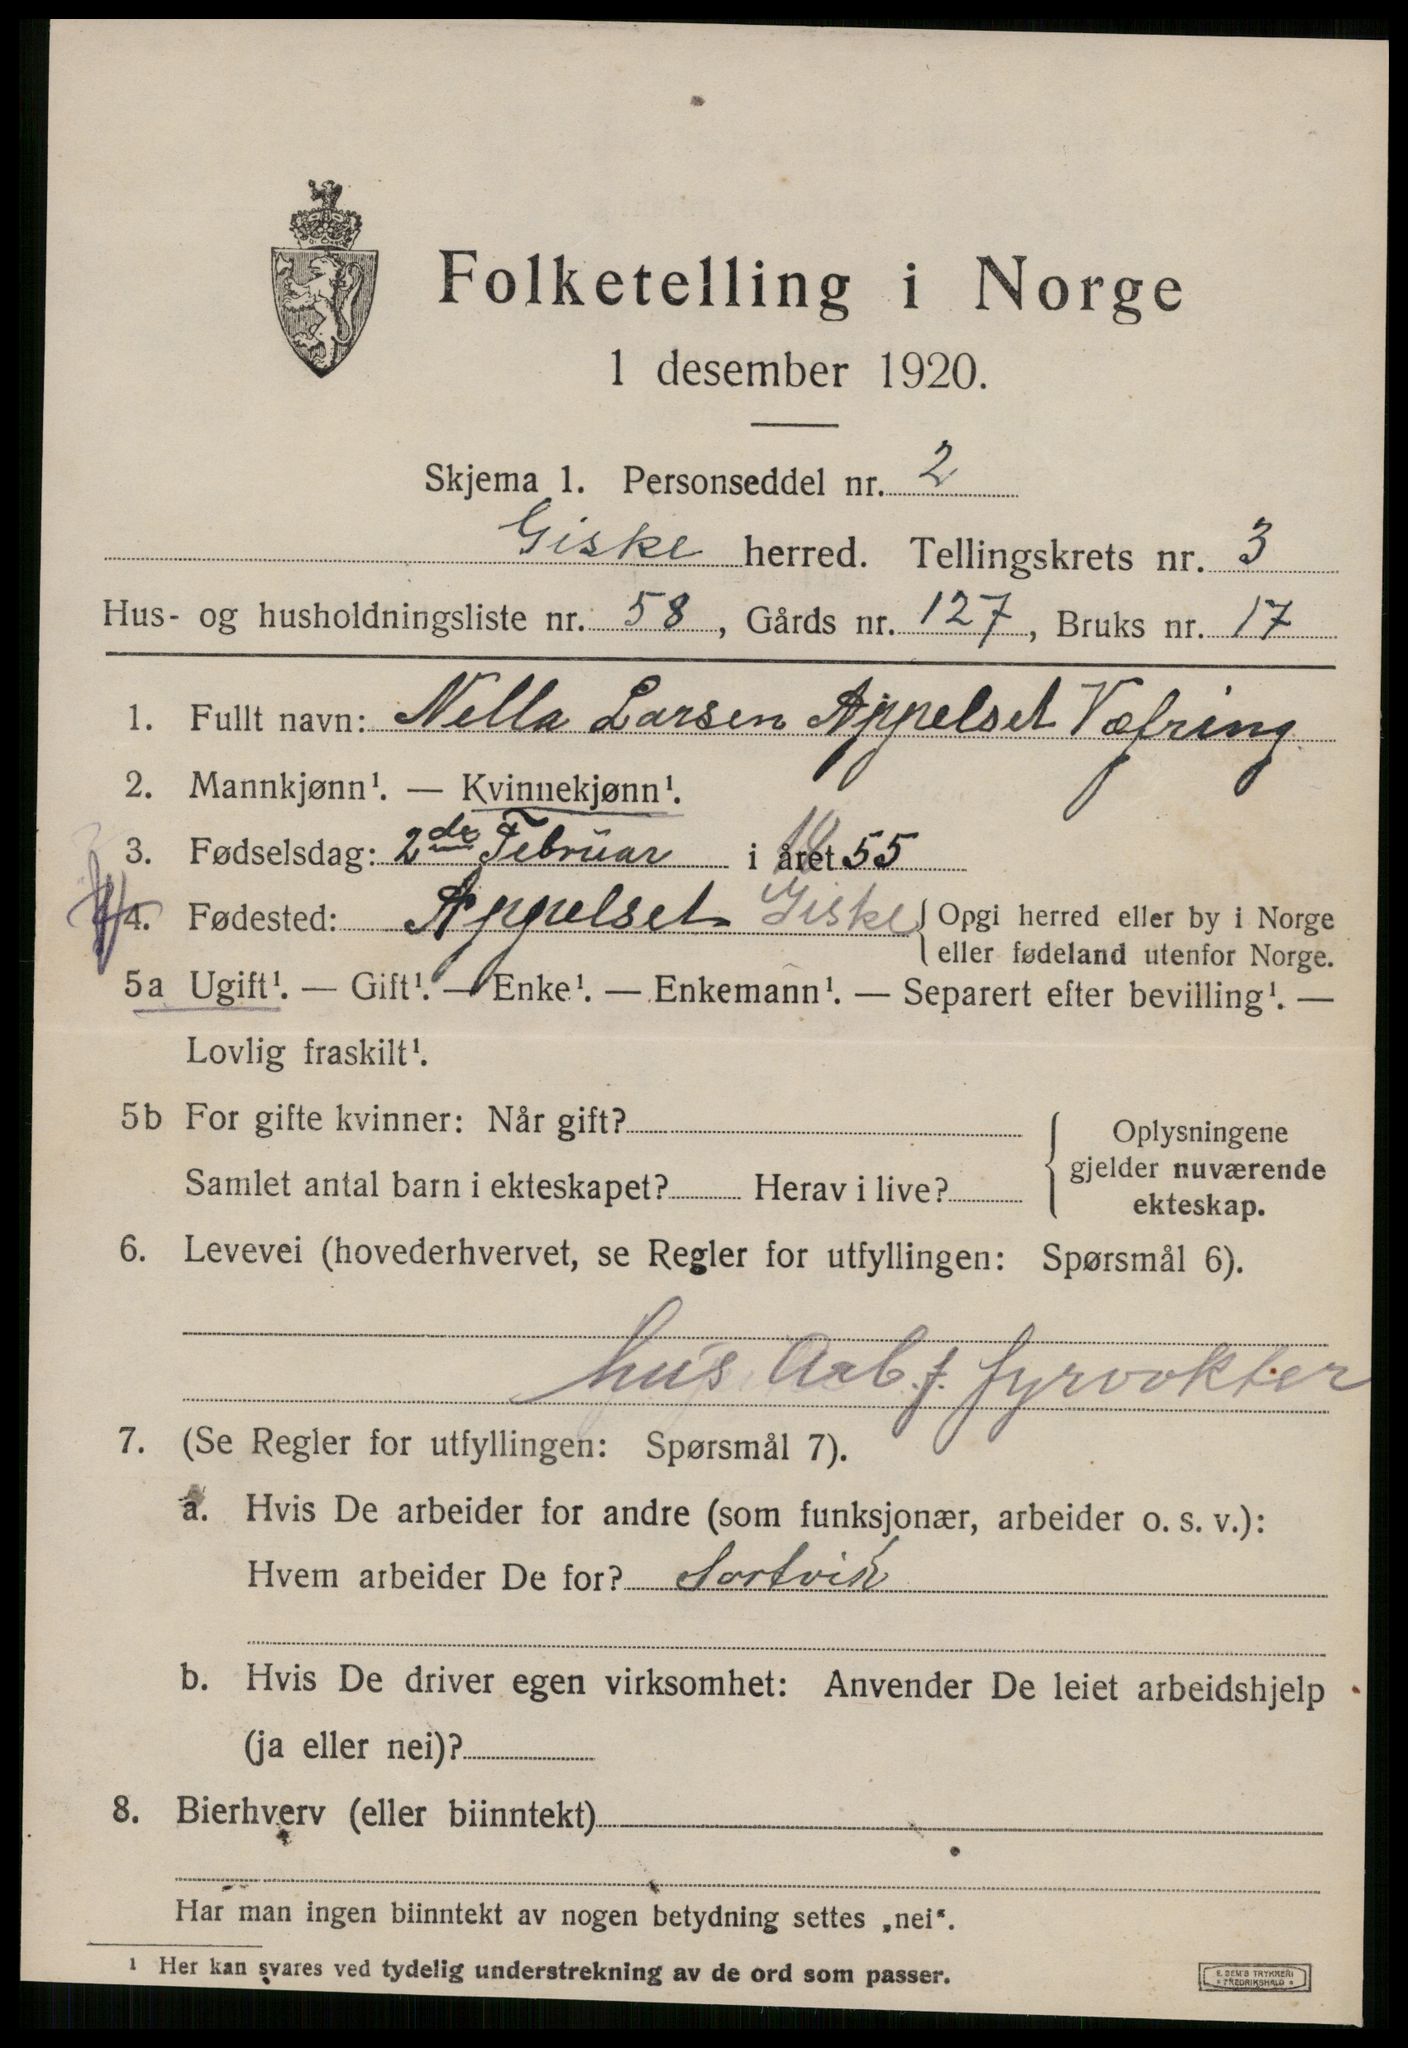 Folketelling i Norge
1 desember 1920.
Skjema 1. Personseddel nr. 2
Giske herred. Tellingskrets nr. 3
Hus- og husholdningsliste nr. 58, Gårds nr. 127, Bruks nr. 17
1. Fullt navn: Nella Larsen Appelset Væfring
2. Mannkjønn¹. — Kvinnekjønn¹.
3. Fødselsdag: 2de Februar i året 1855
4. Fødested: Appelset Giske { Opgi herred eller by i Norge
eller fødeland utenfor Norge.
5a Ugift¹. — Gift¹. — Enke¹. — Enkemann¹. — Separert efter bevilling¹. —
Lovlig fraskilt¹.
5b For gifte kvinner: Når gift?
Samlet antal barn i ekteskapet? Herav i live?
Oplysningene
gjelder nuværende
ekteskap.
6. Levevei (hovederhvervet, se Regler for utfyllingen: Spørsmål 6).
hus Arb. f. fyrvokter
7. (Se Regler for utfyllingen: Spørsmål 7).
a. Hvis De arbeider for andre (som funksjonær, arbeider o. s. v.):
Hvem arbeider De for? Sortvik
b. Hvis De driver egen virksomhet: Anvender De leiet arbeidshjelp
(ja eller nei)?
8. Bierhverv (eller biinntekt)
Har man ingen biinntekt av nogen betydning settes „nei“.
¹ Her kan svares ved tydelig understrekning av de ord som passer.
E. SEM'S TRYKKERI
FREDRIKSHALD